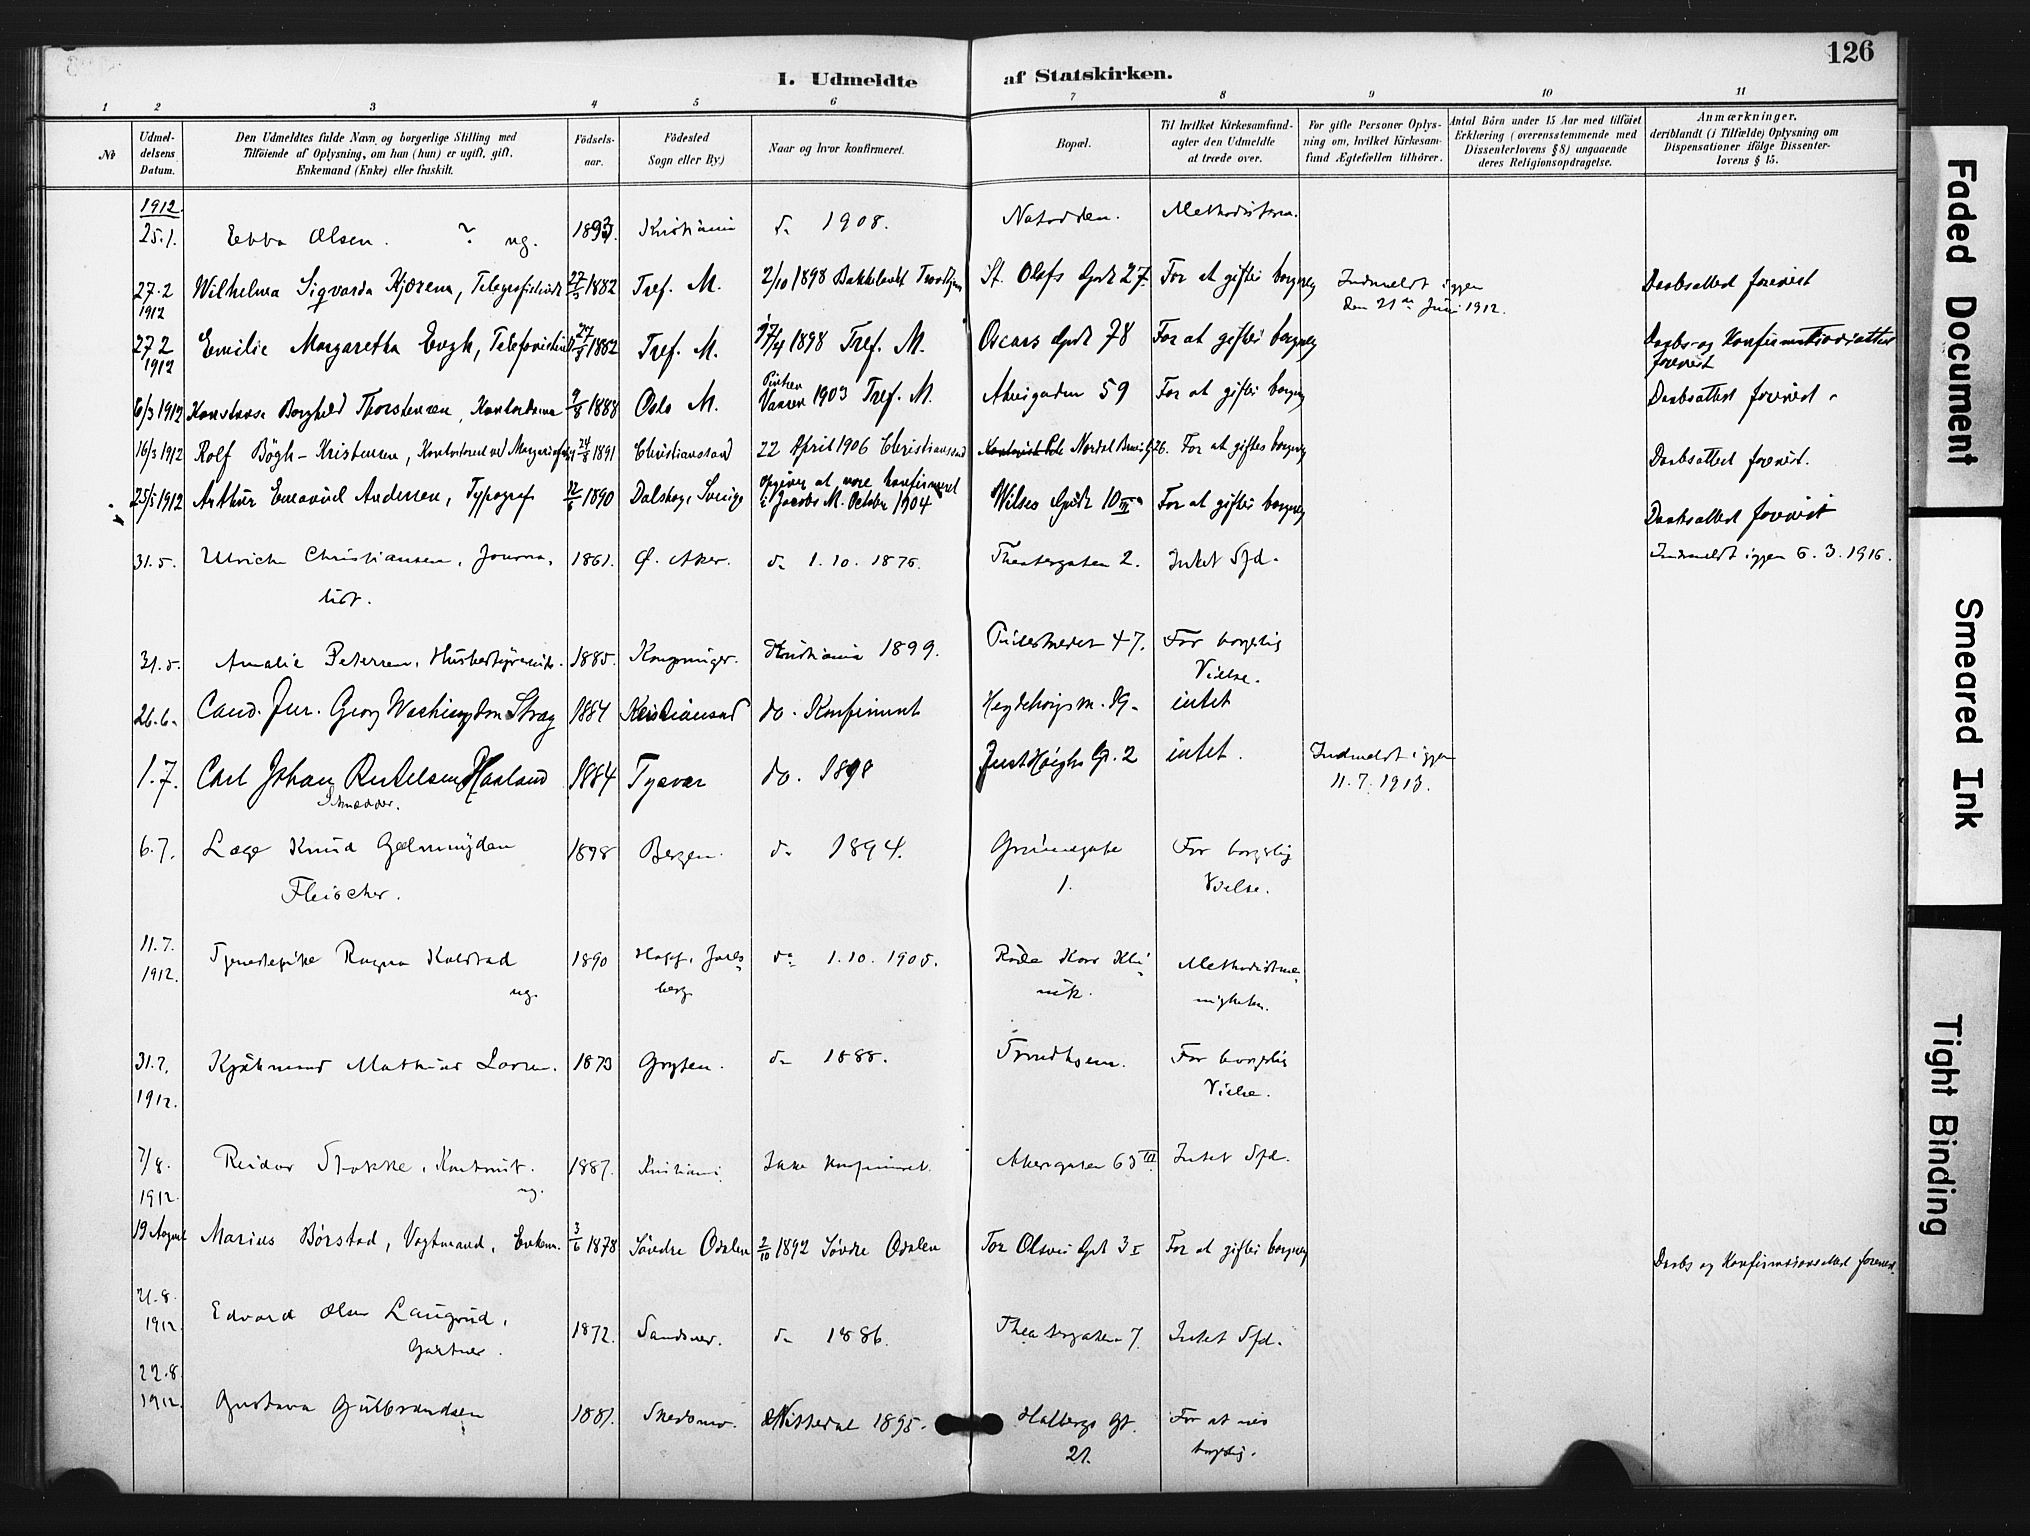 126
I. Udmeldte af Statskirken.
1 2 3 4 5 6 7 8 9 10 11
No
Udmeldelsens Datum.
Den Udmeldtes fulde Navn og borgerlige Stilling med
Tilföiende af Oplysning, om han (hun) er ugift, gift,
Enkemand (Enke) eller fraskilt.
Födselsaar.
Födested
Sogn eller By)
Naar og hvor konfirmeret.
Bopæl.
Til hvilket Kirkesamfund-
agter den Udmeldte
at træde over.
For gifte Personer Oplys-
ning om, hvilket Kirkesam-
fund Ægtefællen tilhörer.
Antal Börn under 15 Aar med tilföiet
Erklæring (overensstemmende med
Dissenterlovens § 8) angaaende
deres Religionsopdragelse.
Anmærkninger,
deriblandt (i Tilfælde) Oplysning om
Dispensationer ifölge Dissenter-
lovens § 15.
1912
25.1. Ebba Olsen. ? ug. Kristiania do 1908. Notodden. Methodisterne.
27.2 1912 Wilhelma Sigvarda Kjörem, 1882 Tref. M. 2/10 1898 Bakkelandet Trondhjem St. Olafs Gade 27. For at giftes borgerlig Indmeldt igjen den 21de Juni 1912. Daabsattest forevist
27 2 1912 Emilie Margaretha Telefonistinde 1882 Tref. M. 17/4 1898 Tref. M. Oscars Gade 78 For at giftes borgerlig Daabs- og Konfirmationsattest forevist
6/3 1912 Konstanse Borghild Thorstensen, Kontordame 9/8 1888 Oslo M. 1903 Tref. M. Akersgaden 59 For at giftes borgerlig Daabsattest forevist
16/3 1912 Rolf Bögh-Kristensen, 24/8 1891 Christianssand 22 April 1906 Christianssand 26. For at giftes borgerlig Daabsattest forevist.
25/5 1912 Arthur Emanuel Andersen, Typograf 1890 Dalskog, Sverige opgiver at være konfirmeret i Jacobs M. October 1904 Wilses Gade 10 III For at giftes borgerlig Daabsattest forevist
31.5. Ulrich Christiansen, Journa-
list. 1861. Ø. Aker. do 1.10. 1876. Theatergaten 2. Intet Sfd. Indmeldt igjen 6.3.1916.
31.5. Amalie Petersen, Husbestyrerinde. 1885. Kongsvinger. Kristiania 1899. Pilestrædet 47. For borgerlig
Vielse.
26.6. Cand. Jur. Georg Washington Stray 1884 Kristiansand do. Konfirmert Hegdehaugsv. intet
1.7. Carl Johan Rasmussen Haaland 1884 Tysvær do. 1898 Just Høighs G. 2 intet. Indmeldt igjen
11.7.1913.
6.7. Læge Knud Gelmuyden
Fleischer. 1898 Bergen. do 1894. Grünersgate
1. For borgerlig
Vielse.
11.7.
1912. Tjenestepike Ragna Kolstad
ug. 1890 Hoff, Jarls-
berg do 1.10. 1905. Røde Kors Kli-
nik. Methodistme-
nigheten.
31.7.
1912. Mathias Larsen. 1873 Gryten. do 1888. Trondhjem. For borgerlig
Vielse.
7/8.
1912. Reidar Stokke, Kontorist.
ug. 1887. Kristiania. Ikke konfirmeret. Akersgaten 65 III Intet Sfd.
19 August Marius Börstad, Vogtmand, Enkem. 3/6 1878 Söndre Odalen 2/10 1892 Söndre Odalen Tor Olsens Gade 3 I For at giftes borgerlig Daabs og Konfirmationsattest forevist.
21.8.
1912. Edvard Olsen Laugerud,
Gartner. 1872. Sandsvær. do 1886. Theatergaten 7. Intet Sfd.
22.8.
1912. Gustava Gulbrandsen 1881. Skedsmo. Nittedal 1895. Holbergs Gt.
21. For at vies
borgerlig.
Faded Document
Smeared Ink
Tight Binding